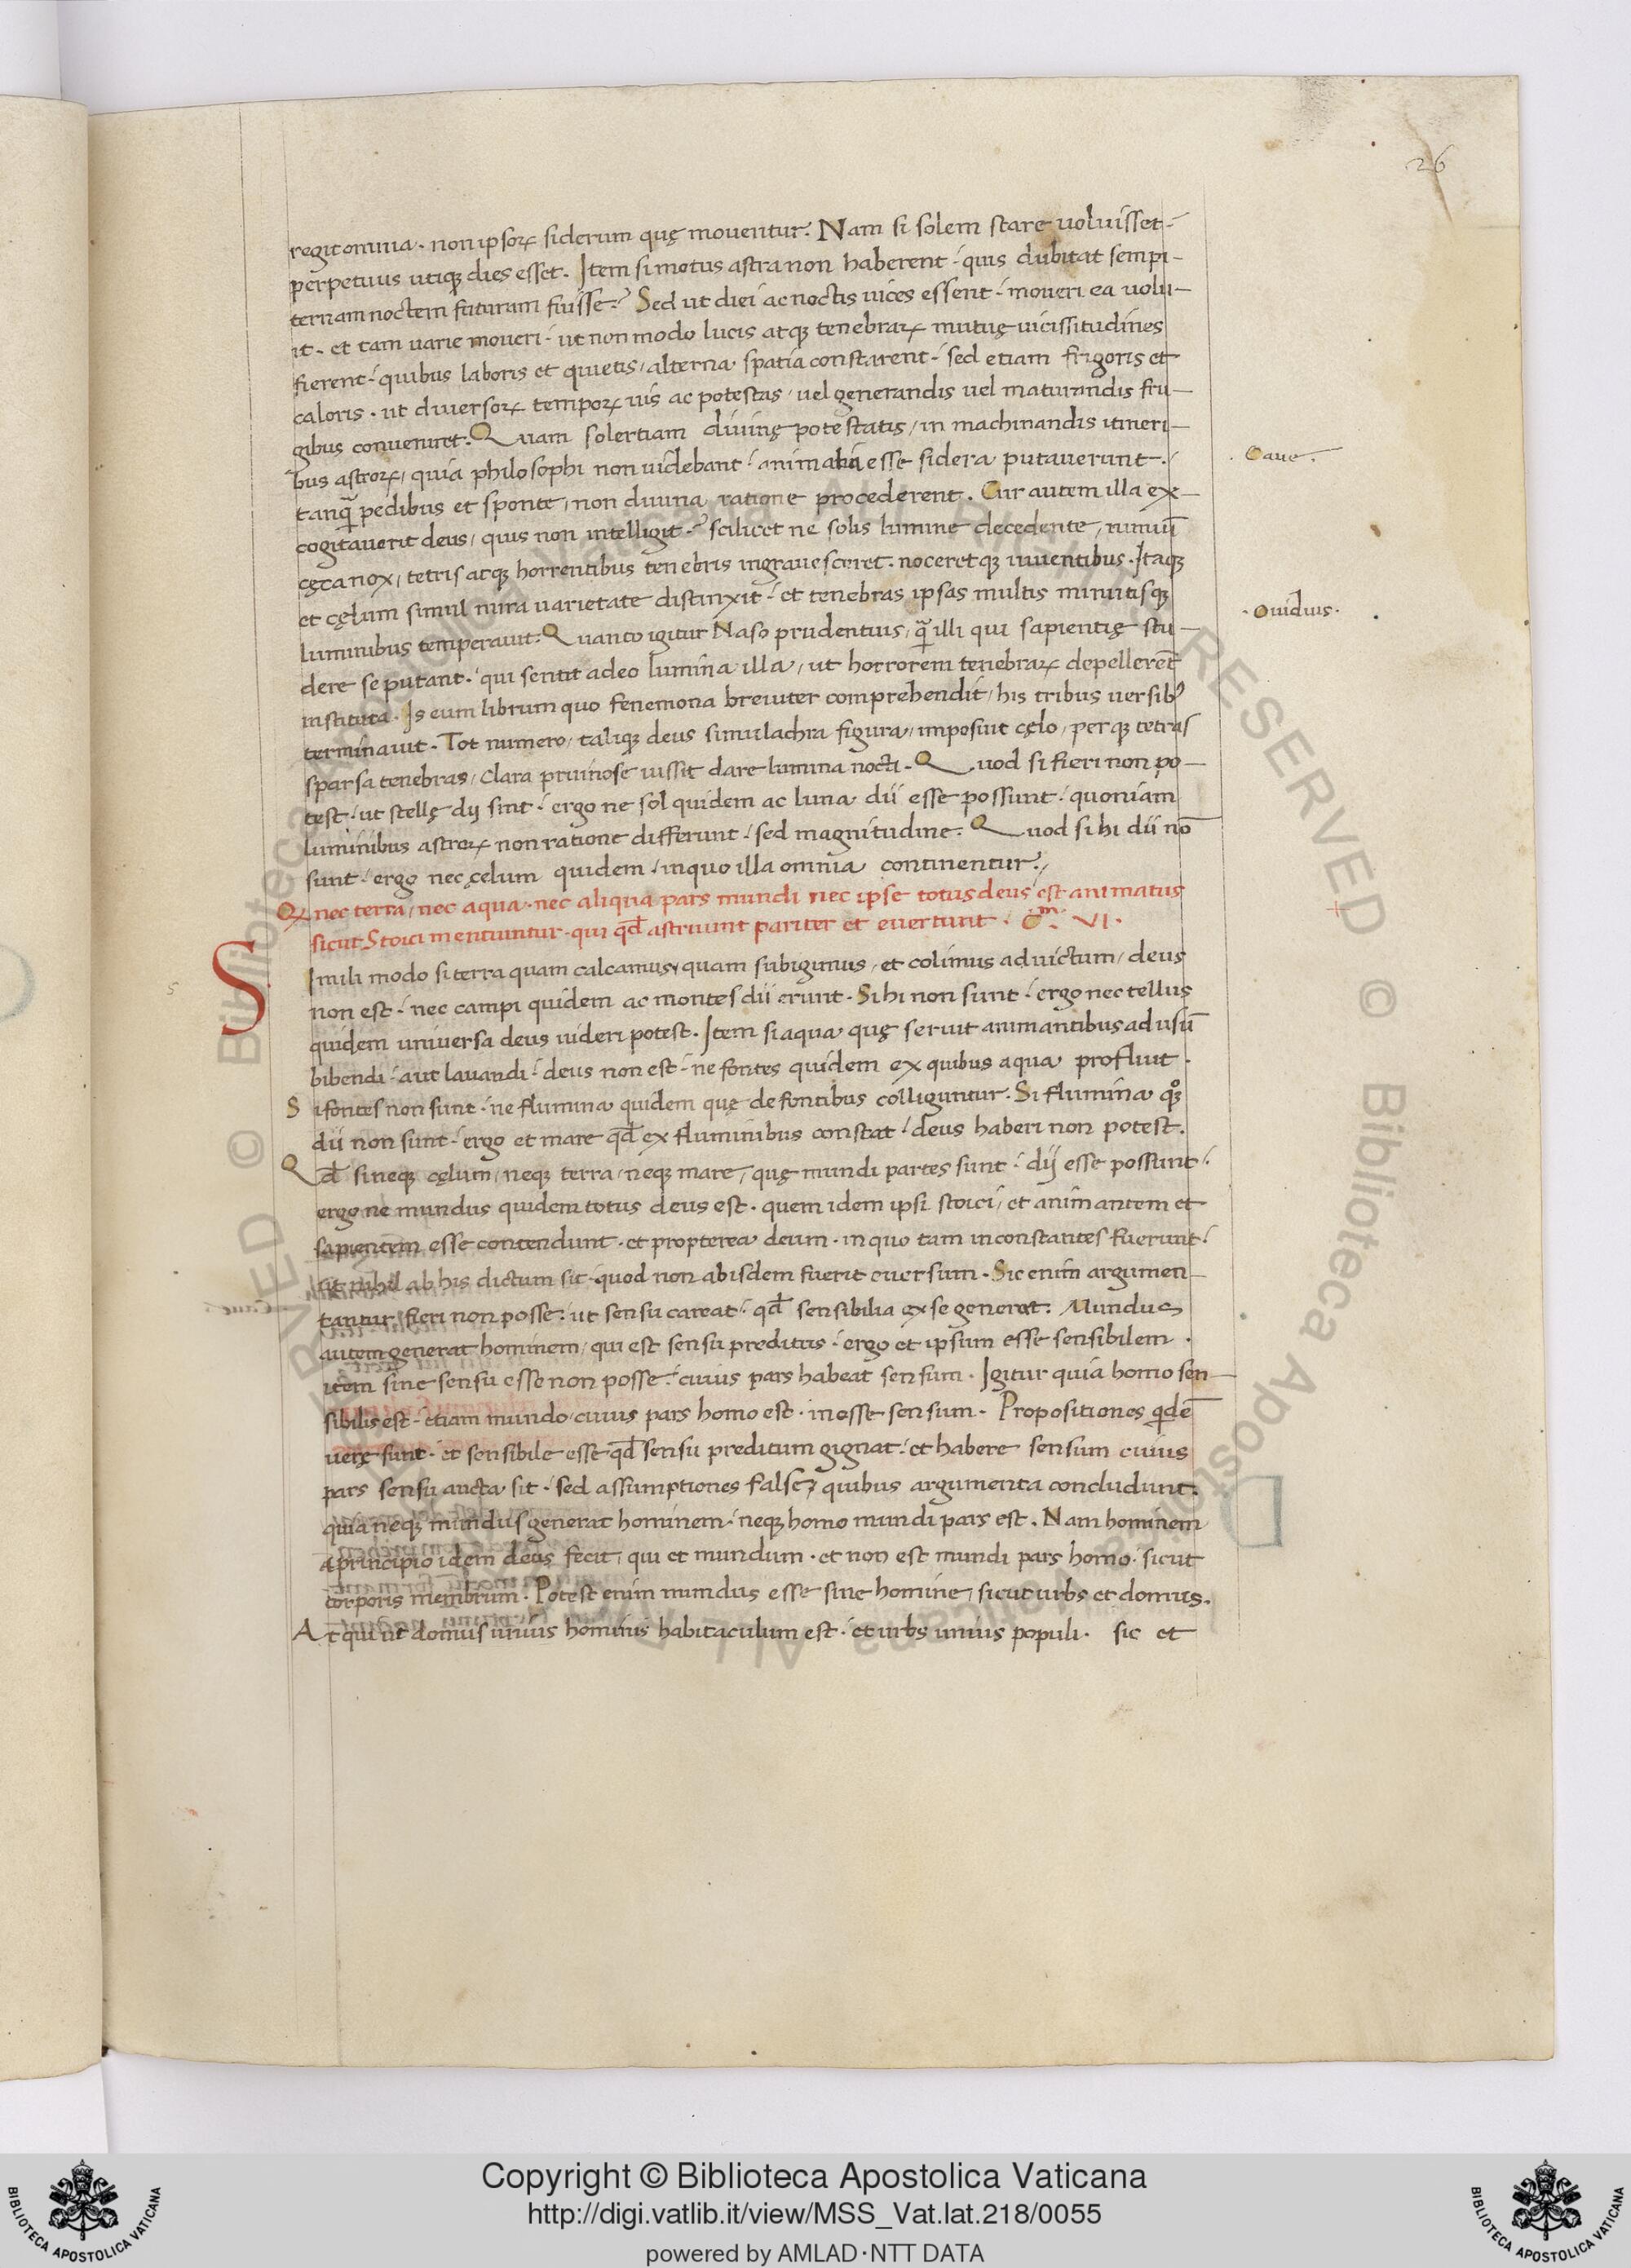 26
regit omnia. non ipsoꝝ siderum quę moventur. Nam si solem stare voluisset
perpetuus utiqꝫ dies esset. Item si motus astra non haberent quis dubitat sempi-
ternam noctem futuram fuisse? Sed ut diei ac noctis vices essent moveri ea volu-
it. et tam varie moveri ut non modo lucis atqꝫ tenebraꝝ mutuę vicissitudines
fierent quibus laboris et quietis / alterna spatia constarent sed etiam frigoris et
caloris. ut diversoꝝ tempoꝝ vis ac potestas / vel generandis vel maturandis fru-
gibus conveniret. Quam solertiam divinę potestatis / in machinandis itineri-
bus astroꝝ / quia philosophi non videbant animalia esse sidera putaverunt.
Cave.
tanꝙ̃ pedibus et sponte / non divina ratione procederent. Cur autem illa ex-
cogitaverit deus / quis non intelligit? scilicet ne solis lumine decedente / nimiū
cęca nox / tetris atqꝫ horrentibus tenebris ingravesceret. noceretqꝫ viventibus. Itaqꝫ
et cęlum simul mira varietate distinxit et tenebras ipsas multis minutisqꝫ
Ovidius.
luminibus temperavit. Quanto igitur Naso prudentius / ꝙ̃ illi qui sapientię stu-
dere se putant. qui sentit adeo lumina illa / ut horrorem tenebraꝝ depellerēt
instituta. Is eum librum quo fenemona breviter comprehendit / his tribus versibꝰ
terminavit. Tot numero / taliqꝫ deus simulachra figura / imposuit cęlo / perqꝫ tetras
sparsa tenebras / Clara pruinose iussit dare lumina nocti. Quod si fieri non po-
test ut stellę dij sint ergo ne sol quidem ac luna dii esse possunt quoniam
luminibus astroꝝ non ratione differunt sed magnitudine. Quod si hi dii nō
sunt ergo nec cęlum quidem in quo illa omnia continentur.
Qꝝ nec terra / nec aqua. nec aliqua pars mundi nec ipse totus deus est animatus
sicut Stoici mentiuntur. qui qđ astruunt pariter et evertunt. Cᵐ. VI.
Simili modo si terra quam calcamus quam subigimus / et colimus ad victum / deus
non est nec campi quidem ac montes dii erunt. Si hi non sunt ergo nec tellus
quidem universa deus videri potest. Item si aqua quę servit animantibus ad usū
bibendi aut lavandi deus non est ne fontes quidem ex quibus aqua profluit.
Si fontes non sunt. ne flumina quidem quę de fontibus colliguntur. Si flumina qͦꝫ
dii non sunt ergo et mare qđ ex fluminibus constat deus haberi non potest.
Qđ si neqꝫ cęlum / neqꝫ terra / neqꝫ mare / quę mundi partes sunt dij esse possunt
ergo ne mundus quidem totus deus est. quem idem ipsi stoici / et animantem et
sapientem esse contendunt. et propterea deum. in quo tam inconstantes fuerunt
ut nihil ab his dictum sit quod non ab isdem fuerit eversum. Sic enim argumen-
tantur fieri non posse ut sensu careat qđ sensibilia ex se generat. Mundus
autem generat hominem / qui est sensu preditus ergo et ipsum esse sensibilem.
item sine sensu esse non posse cuius pars habeat sensum. Igitur quia homo sen-
sibilis est etiam mundo / cuius pars homo est. inesse sensum. Propositiones qidē
verę sunt et sensibile esse qđ sensu preditum gignat et habere sensum cuius
pars sensu aucta sit sed assumptiones falsę / quibus argumenta concludunt.
quia neqꝫ mundus generat hominem neqꝫ homo mundi pars est. Nam hominem
a principio idem deus fecit / qui et mundum. et non est mundi pars homo sicut
corporis membrum. Potest enim mundus esse sine homine / sicut urbs et domus.
Atqui ut domus unius hominis habitaculum est. et urbs unius populi. sic et
Copyright © Biblioteca Apostolica Vaticana
http://digi.vatlib.it/view/MSS_Vat.lat.218/0055
powered by AMLAD·NTT DATA
BIBLIOTECA APOSTOLICA VATICANA
BIBLIOTECA APOSTOLICA VATICANA